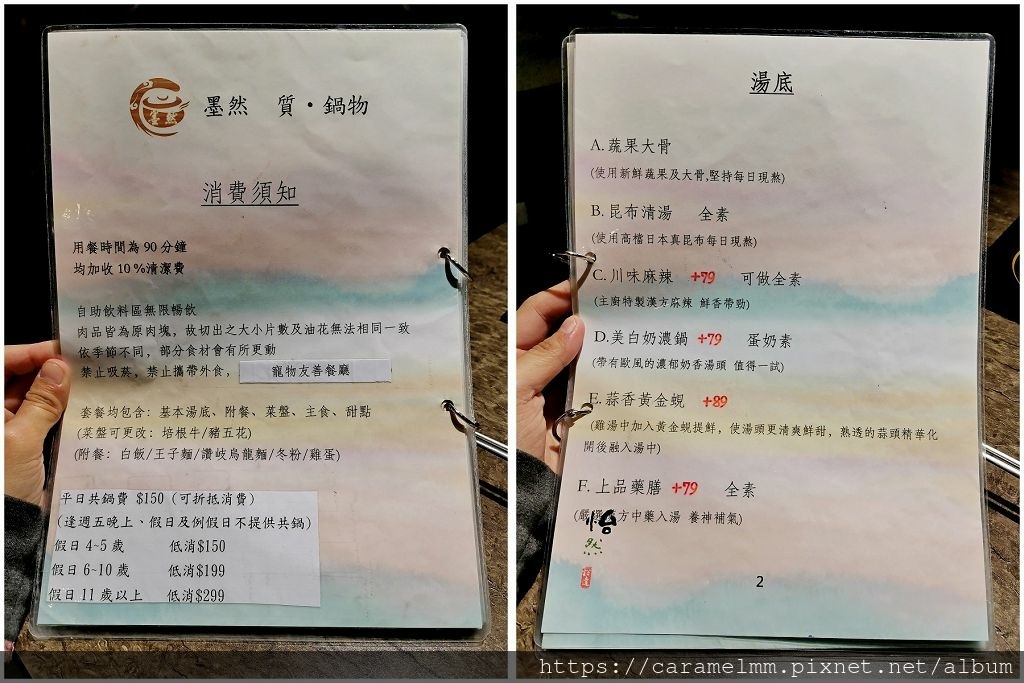 墨然
墨然 質・鍋物
消費須知
用餐時間為 90 分鐘
均加收 10%清潔費
自助飲料區無限暢飲
肉品皆為原肉塊，故切出之大小片數及油花無法相同一致
依季節不同，部分食材會有所更動
禁止吸菸，禁止攜帶外食， 寵物友善餐廳
套餐均包含：基本湯底、附餐、菜盤、主食、甜點
(菜盤可更改：培根牛/豬五花)
(附餐：白飯/王子麵/讚岐烏龍麵/冬粉/雞蛋)
平日共鍋費 $150 (可折抵消費)
(逢週五晚上、假日及例假日不提供共鍋)
假日 4~5 歲 低消$150
假日 6~10 歲 低消$199
假日 11 歲以上 低消$299
湯底
A. 蔬果大骨
(使用新鮮蔬果及大骨,堅持每日現熬)
B. 昆布清湯 全素
(使用高檔日本真昆布每日現熬)
C. 川味麻辣 +79 可做全素
(主廚特製漢方麻辣 鮮香帶勁)
D.美白奶濃鍋 +79 蛋奶素
(帶有歐風的濃郁奶香湯頭 值得一試)
E. 蒜香黃金蜆 +89
(雞湯中加入黃金蜆提鮮，使湯頭更清爽鮮甜，熟透的蒜頭精華化
開後融入湯中)
F. 上品藥膳 +79 全素
(嚴選 方中藥入湯 養神補氣)
怡
然
2
https://caramelmm.pixnet.net/album